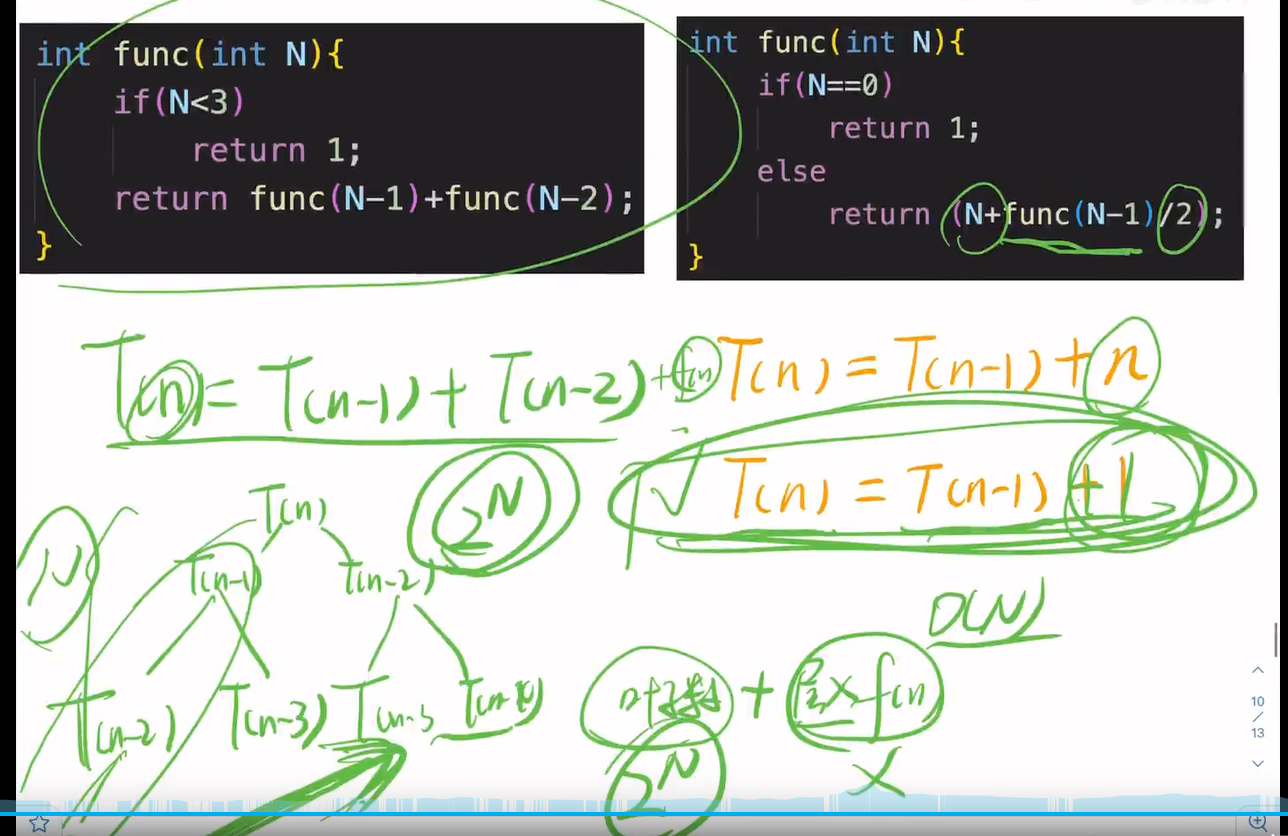 int func(int N){
if(N<3)
return 1;
return func(N-1)+func(N-2);
}
int func(int N){
if(N==0)
return 1;
else
return (N+func(N-1)/2);
}
T(n) = T(n-1) + T(n-2) + f(n)
T(n) = T(n-1) + n
✓ T(n) = T(n-1) + 1
2^N
N
T(n)
T(n-1) T(n-2)
T(n-2) T(n-3) T(n-3
O(N)
叶子数 + 层 × f(n)
2^N
×
10
/
13